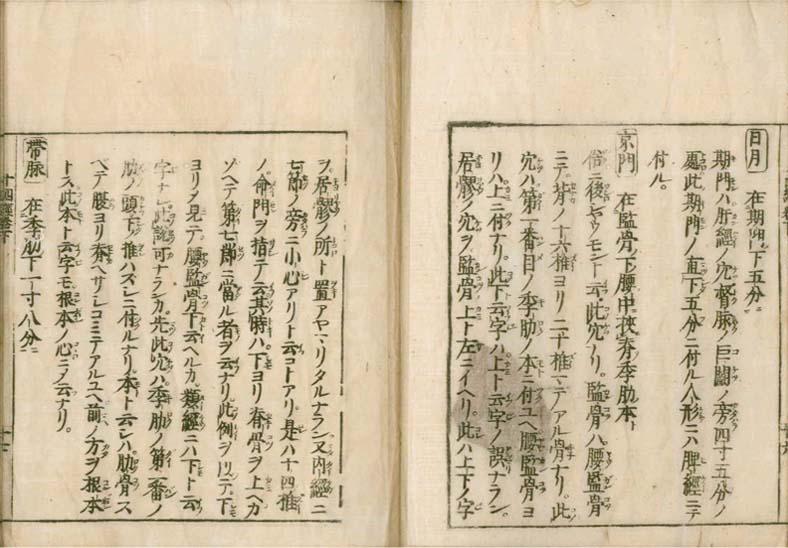 日月 在期門下五分ニ
期門ハ肝經ノ穴督脉ノ巨闕ノ旁四寸五分ノ
處此期門ノ直下五分ニ付ル人形ニハ脾經ニテ
付ル。
京門 在監骨下腰中挾脊季肋本ニ
俗ニ後ギウモント云。此穴ナリ。監骨ハ腰監骨
ニテ。背ノ十六椎ヨリ二十椎マデアル骨ナリ。此
穴ハ第一番目ノ季肋ノ本ニ付ユヘ腰監骨ヨ
リハ上ニ付ナリ。此下云字ハ上ト云字ノ誤ナラン。
居髎ノ穴ヲ監骨上ト左ニイヘリ。此ハ上下ノ字
ヲ居髎ノ所ト置アヤマリタルナラン又内經ニ
七節ノ旁ニ小心アリト云コトアリ是ハ十四椎
ノ命門ヲ指テ云其時ハ下ヨリ脊骨ヲ上ヘカ
ゾヘテ第七節ニ當ル者ヲ云ナリ此例ヲ以テ下
ヨリ見テ腰監骨下云ヘルカ類經ニハ下ト云
字ナシ此説可ナランカ先此穴ハ季肋ノ第一番ノ
肋ノ頭下推ハズレニ付ルナリ本ト云レハ肋骨ス
ベテ腹ヨリ脊ヘサシコミテアルユヘ前ノ方ヲ根本
トス此本ト云字モ根本ノ心ニノ云ナリ。
帶脉 在季肋下一寸八分ニ
十四經巻下